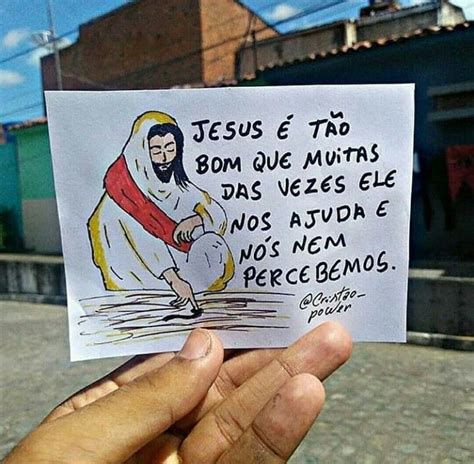 JESUS É TÃO
BOM QUE MUITAS
DAS VEZES ELE
NOS AJUDA E
NÓS NEM
PERCEBEMOS.
@Cristao_
power